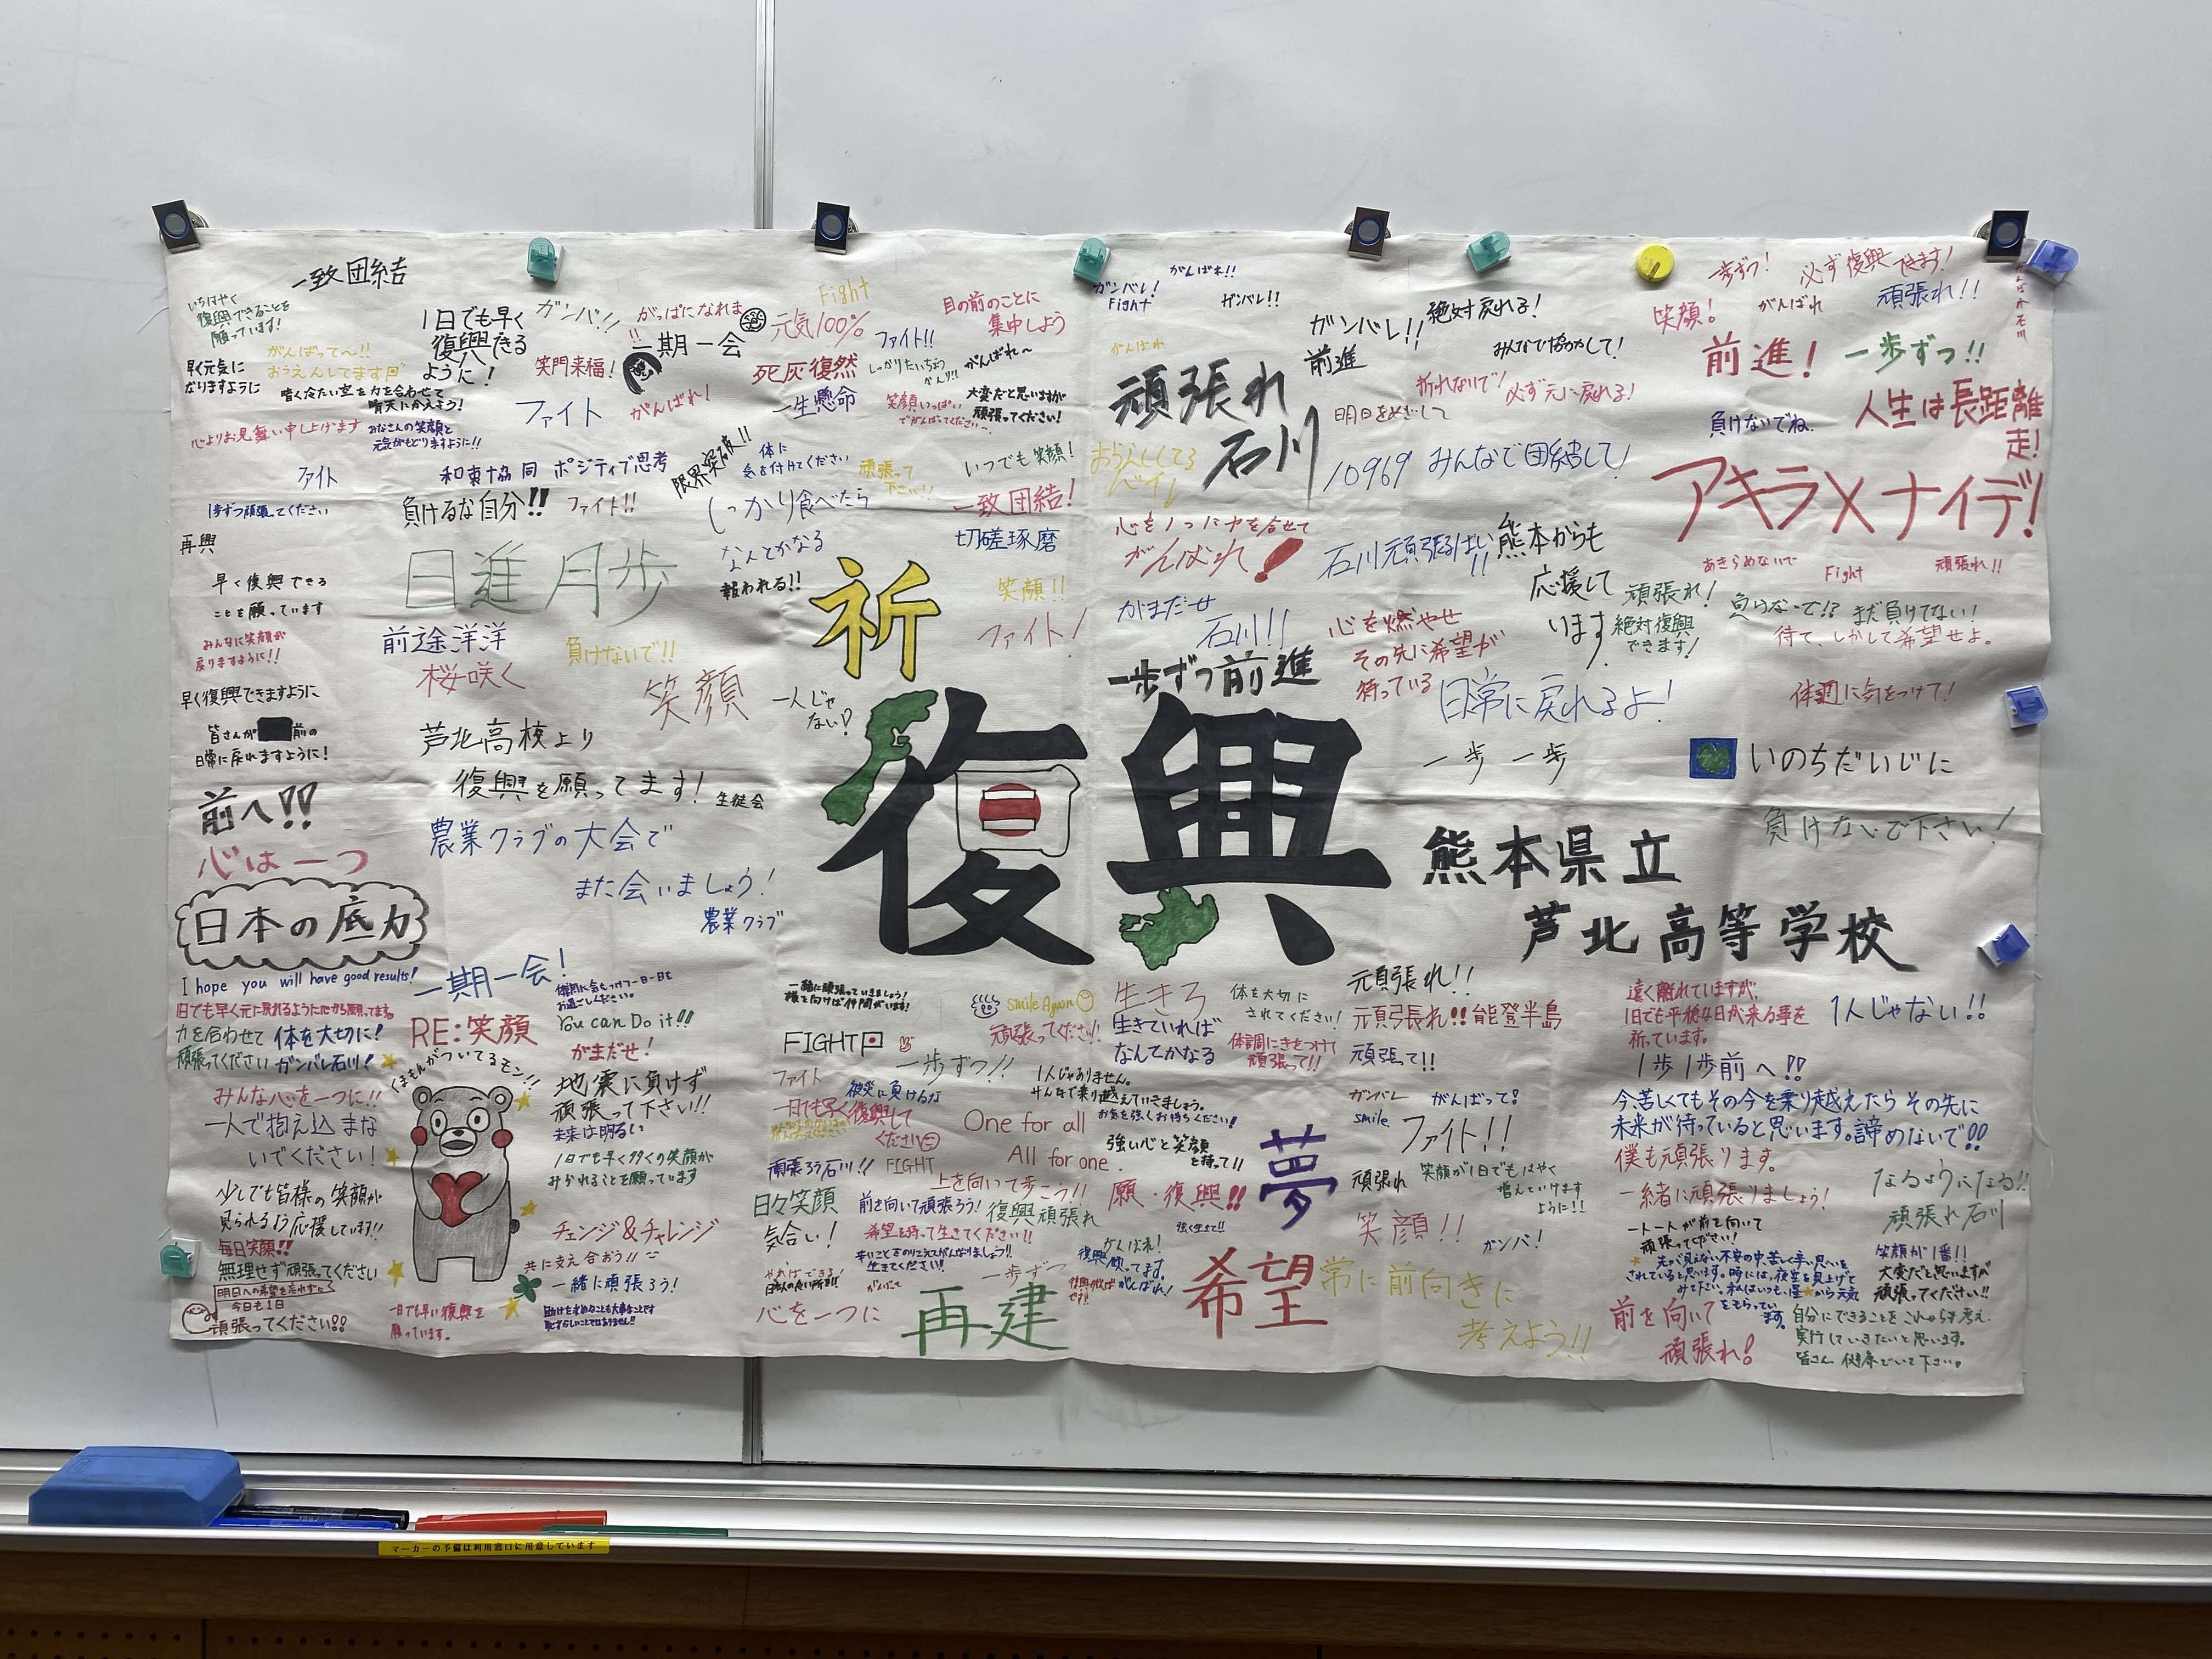 一致団結
いちはやく
復興できることを
願っています!
早く元気に
なりますように
がんばって〜!!
おうえんしてます
暗く冷たい空を力を合わせて
晴天にかえよう!
心よりお見舞い申し上げます
みなさんの笑顔と
元気がもどりますように!!
1日でも早く
復興できる
ように!
ガンバ!!
笑門来福!
ファイト
がっぱになれま
!!
一期一会
がんばれ!
Fight
元気100%
死灰復然
一生懸命
ファイト!!
目の前のことに
集中しよう
がんばれ〜
大変だと思いますが
頑張ってください!
笑顔いっぱい
でがんばってください〜
ファイト
和衷協同 ポジティブ思考
限界突破!!
体に
気を付けてください
頑張って
下さい!!
いつでも笑顔!
1歩ずつ頑張ってください
負けるな自分!!
ファイト!!
しっかり食べたら
なんとかなる
報われる!!
一致団結!
切磋琢磨
再興
早く復興できる
ことを願っています
みんなに笑顔が
戻りますように!!
早く復興できますように
皆さんが
前の
日常に戻れますように!
日進月歩
前途洋洋
桜咲く
負けないで!!
笑顔
笑顔!!
ファイト!
一人じゃ
ない!?
祈
復興
芦北高校より
復興を願ってます!
生徒会
農業クラブの大会で
また会いましょう!
農業クラブ
前へ!!
心は一つ
日本の底力
がんばれ!!
ガンバレ!
Fight
ガンバレ!!
がんばれ
頑張れ
石川
ガンバレ!!
前進
絶対戻れる!
みんなで協力して!
折れないで!
必ず元に戻れる!
明日をめざして
10969 みんなで団結して!
心を1つに力を合せて
がんばれ!
石川頑張るばい
!!
熊本からも
応援して
います
がまだせ
石川!!
一歩ずつ前進
心を燃やせ
その先に希望が
待っている
日常に戻れるよ!
一歩一歩
一歩ずつ!
必ず復興できます!
笑顔!
がんばれ
頑張れ!!
前進!
一歩ずつ!!
負けないでね
人生は長距離
走!
アキラ×ナイデ!
あきらめないで
Fight
頑張れ!!
頑張れ!
絶対復興
できます!
負けないで!? まだ負けてない!
待て、しかして希望せよ。
体調に気をつけて!
いのちだいじに
負けないで下さい!
熊本県立
芦北高等学校
I hope you will have good results!
1日でも早く元に戻れるように心から願ってます。
力を合わせて
頑張ってください
体を大切に!
ガンバレ石川!
みんな心を一つに!!
一人で抱え込まな
いでください!
少しでも皆様の笑顔が
見られるよう応援しています!!
毎日笑顔!!
無理せず頑張ってください
明日への希望を忘れずに
今日も1日
頑張ってください!!
一期一会!
RE:笑顔
くまもんがついてるモン!!
You can Do it!!
がまだせ!
地震に負けず
頑張って下さい!!
未来は明るい
1日でも早く多くの笑顔が
みられることを願っています
チェンジ&チャレンジ
共に支え合おう!!
一緒に頑張ろう!
一日でも早い復興を
願っています。
助けを求めることも大事なことです
恥ずらしいことではありません!!
一緒に頑張っていきましょう!
横を向けば仲間がいます!
Smile Again
頑張ってください!
FIGHT
一歩ずつ!!
ファイト
被災に負けるな
一日でも早く復興して
ください
1人じゃありません。
みんなで乗り越えていきましょう。
お気を強くお持ちください!
One for all
All for one.
強い心と笑顔
を持って!!
頑張ろう石川!!
FIGHT
上を向いて歩こう!!
日々笑顔
気合い!
前を向いて頑張ろう!
復興頑張れ
希望を持って生きてください!!
がんばれ!
復興願ってます。
一歩ずつ
心を一つに
再建
生きろ
生きていれば
なんてかなる
体を大切に
されてください!
体調にきをつけて
頑張って!!
願・復興!!
強く生きて!!
夢
希望
元頑張れ!!
元頑張れ!!能登半島
頑張って!!
ガンバレ
がんばって!
smile
ファイト!!
頑張れ
笑顔が1日でもはやく
増えていけます
ように!!
笑顔!!
ガンバ!
常に前向きに
考えよう!!
遠く離れていますが、
1日でも平穏な日が来る事を
祈っています。
1人じゃない!!
1歩1歩前へ!!
今、苦しくてもその今を乗り越えたらその先に
未来が待っていると思います。諦めないで!!
僕も頑張ります。
一緒に頑張りましょう!
なるようになる!!
頑張れ石川
一人一人が前を向いて
頑張ってください!
先が見えない不安の中、苦しく辛い思いを
されていると思います。時には、夜空を見上げて
みて下さい。私はいつも星から元気
をもらってい
ます。
笑顔が1番!!
大変だと思いますが
頑張ってください!!
前を向いて
頑張れ!
自分にできることをこれからも考え、
実行していきたいと思います。
皆さん 健康でいて下さい。
マーカーの予備は利用窓口に用意しています